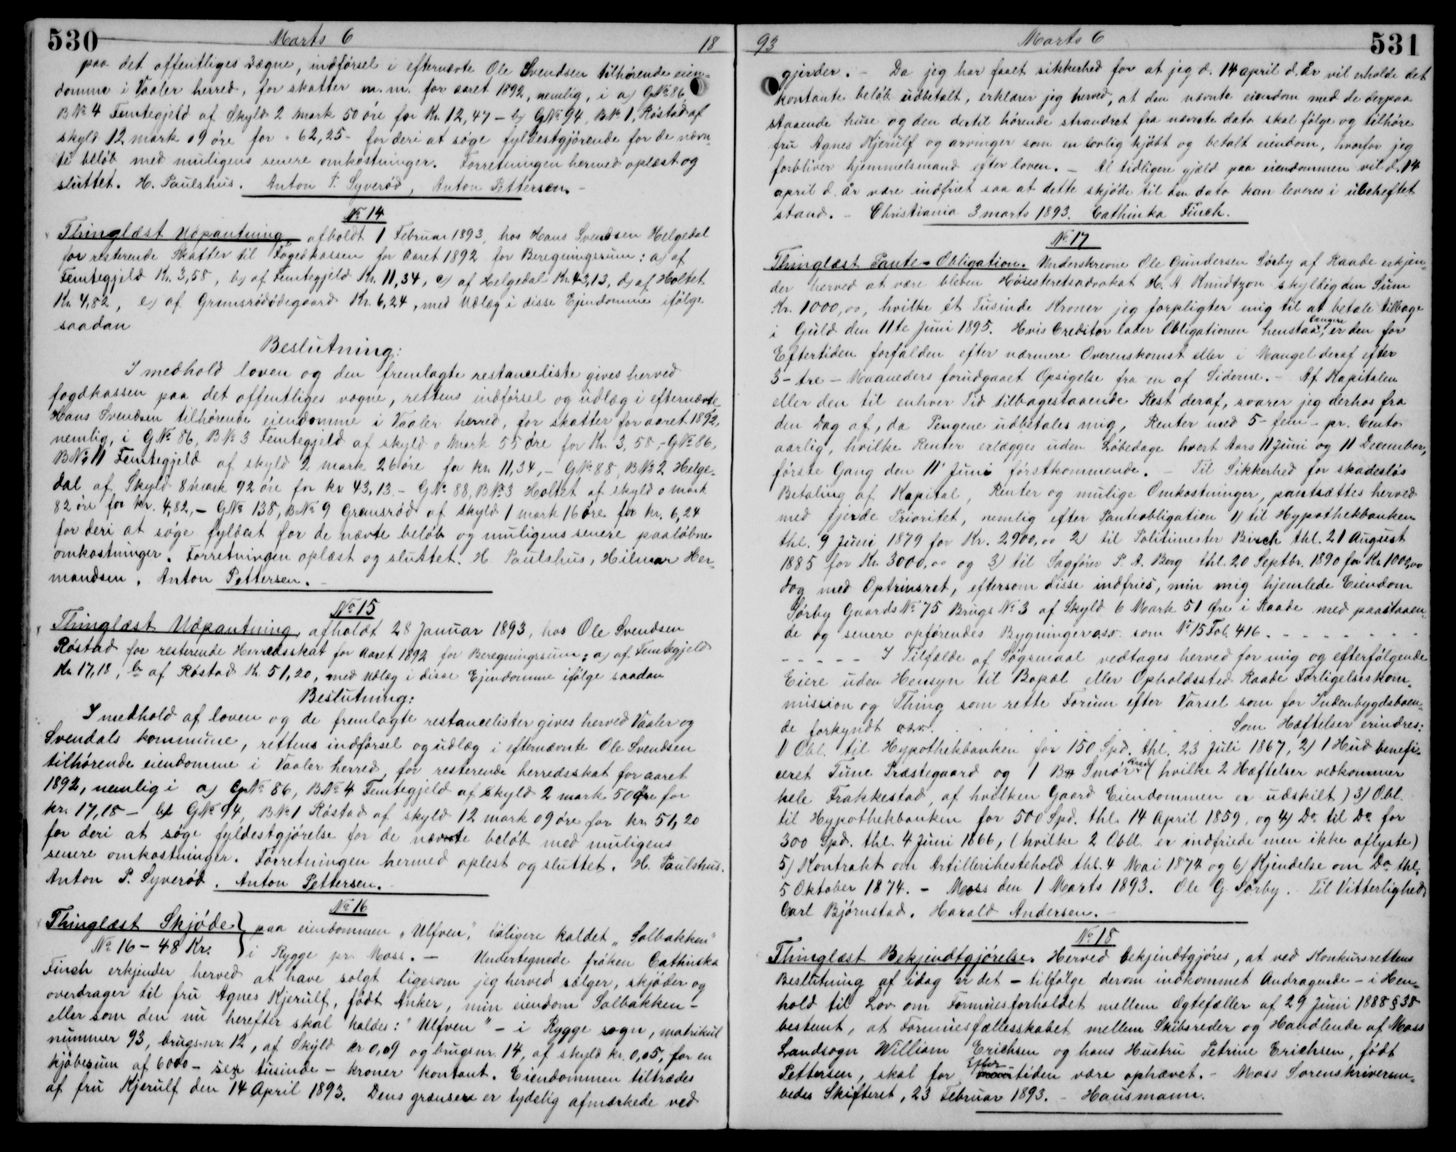 530 Marts 6 18
paa det offentliges vægne, indførsel i efternævte Ole Svendsen tilhørende eien-
domme i Vaaler herred, for skatter m.m. for aaret 1892, nemlig, i a) G№ 86
B№ 4 Femtegjeld af skyld 2 mark 50 øre for Kr. 12,47 - b) G№ 94, B№ 1, Røstad af
skyld 12 mark 09 øre for - 62,25 - for deri at søge fyldestgjørende for de nævn-
te beløb med muligens senere omkostninger. Forretningen hermed oplæst og
sluttet. H. Paulshus. Anton P. Syverød, Anton Pettersen. -
№ 14
Thinglæst Udpantning afholdt 1 Februar 1893, hos Hans Svendsen Helgedal
for resterende Skatter til Fogedkassen for Aaret 1892 for Beregningssum: a) af
Femtegjeld Kr. 3,58, b) af Femtegjeld Kr. 11,34, c) af Helgedal Kr. 43,13, d) af Holtet
Kr. 4,82, e) af Grønsrødødegaard Kr. 6,24, med Udlæg i disse Ejendomme ifølge
saadan
Beslutning:
I medhold loven og den fremlagte restanceliste gives herved
fogdkassen paa det offentliges vegne, rettens indførsel og udlæg i efternævte
Hans Svendsen tilhørende eiendomme i Vaaler herred, for skatter for aaret 1892,
nemlig, i G№ 86, B№ 3 Femtegjeld af skyld 0 Mark 55 øre for Kr. 3,58 - G№ 86,
B№ 11 Femtegjeld af skyld 2 mark 26 øre for kr. 11,34, - G№ 88 B№ 2 Helge-
dal af Skyld 8 mark 92 øre for kr 43,13. - G№ 88, B№ 3 Holtet af skyld 0 mark
82 øre for kr. 4,82, - G№ 138, B№ 9 Grønsrød af skyld 1 mark 16 øre for kr. 6,24
for deri at søge fyldest for de nævte beløb og muligens senere paaløbne
omkostninger. Forretningen oplæst og sluttet. H. Paulshus, Hilmar Her-
mandsen. Anton Pettersen. -
№ 15
Thinglæst Udpantning afholdt 28 Januar 1893, hos Ole Svendsen
Røstad for resterende Herredsskat for Aaret 1892 for Beregningssum; a) af Femtegjeld
Kr. 17,18, b) af Røstad Kr. 51,20, med Udlæg i disse Ejendomme ifølge saadan
Beslutning:
I medhold af loven og de fremlagte restancelister gives herved Vaaler og
Svendals kommune, rettens indførsel og udlæg i efternævnte Ole Svendsen
tilhørende eiendomme i Vaaler herred, for resterende herredsskat for aaret
1892, nemlig i a) G№ 86, B№ 4 Femtegjeld af skyld 2 mark 50 øre for
kr. 17,18 - b) G№ 94, B№ 1 Røstad af skyld 12 mark 09 øre for kr. 51,20
for deri at søge fyldestgjørelse for de nævnte beløb med muligens
senere omkostninger. Forretningen hermed oplest og sluttet. H. Paulshus.
Anton P. Syverød. Anton Pettersen. -
№ 16
Thinglæst Skjøde paa eiendommen „Ulfven", tidligere kaldet „Solbakken"
№ 16 - 48 Kr. i Rygge pr. Moss. - Undertegnede frøken Cathinka
Finch erkjender herved at have solgt ligesom jeg herved sælger, skjøder og
overdrager til fru Agnes Kjerulf, født Anker, min eiendom Solbakken -
eller som den nu herefter skal kaldes: "Ulfven" - i Rygge sogn, matrikul
nummer 93, brugsnr. 12, af skyld kr 0,09 og brugsnr. 14, af skyld kr. 0,05, for en
kjøbesum af 6000 - sex tusinde - kroner kontant. Eiendommen tiltrædes
af fru Kjerulf den 14 April 1893. Dens grænser er tydelig afmærkede ved
93 Marts 6 531
gjerder. - Da jeg har faaet sikkerhed for at jeg d. 14 april d. År vil erholde det
kontante beløb udbetalt, erklærer jeg herved, at den nævnte eiendom med de derpaa
staaende huse og den dertil hørende strandret fra nævnte dato skal følge og tilhøre
fru Agnes Kjerulf og arvinger som en lovlig kjøbt og betalt eiendom, hvorfor jeg
forbliver hjemmelsmand efter loven. - Al tidligere gjæld paa eiendommen vil d. 14
april d. År være indfriet saa at dette skjøde til den dato kan leveres i ubeheftet
stand. - Christiania 3 marts 1893. Cathinka Finch.
№ 17
Thinglæst Pante-Obligation. Underskrevne Ole Gundersen Sørby af Raade erkjen-
der herved at være bleven Høiesteretsadvokat H. A. Knudtzon skyldig den Sum
Kr. 1000,00, hvilke Et Tusinde Kroner jeg forpligter mig til at betale tilbage
i Guld den 11te Juni 1895. Hvis Creditor lader Obligationen henstaa længere, er den for
Eftertiden forfalden efter nærmere Overenskomst eller i Mangel deraf efter
3 - tre - Maaneders forudgaaet Opsigelse fra en af Siderne. - Af Kapitalen
eller den til enhver Tid tilbagestaaende Rest deraf, svarer jeg derhos fra
den Dag af, da Pengene udbetales mig, Renter med 5 - fem - pr. Cento
aarlig, hvilke Renter erlægges uden Løbedage hvert Aars 11 Juni og 11 December,
første Gang den 11' Juni førstkommende. - Til Sikkerhed for skadesløs
Betaling af Kapital, Renter og mulige Omkostninger, pantsættes herved
med fjerde Prioritet, nemlig efter Panteobligation 1) til Hypothekbanken
thl. 9 Juni 1879 for Kr. 2900,00 2) til Politimester Birch thl. 21 August
1885 for Kr. 3000,00 og 3) til Sagfører P. A. Berg thl. 20 Septbr. 1890 for Kr 1000,00
dog med Optrinsret, eftersom disse indfries, min mig hjemlede Eiendom
Sørby Gaards № 75 Brugs № 3 af Skyld 6 Mark 51 Øre i Raade med paastaaen-
de og senere opførendes Bygninger osv. som № 15 Fol. 416. - - - - - - -
- - - - - I Tilfælde af Søgsmaal vedtages herved for mig og efterfølgende
Eiere uden Hensyn til Bopæl eller Opholdssted Raade Forligelseskom-
mission og Thing som rette Forum efter Varsel som for Indenbygdsboen-
de forkyndt osv. . . . . . . . . . . Som Hæftelser erindres:
1 Obl. til Hypothekbanken for 150 Spd. thl. 23 Juli 1867, 2) 1 Hud benefi-
ceret Tune Præstegaard og 1 B℔ Smør (hvilke 2 Hæftelser vedkommer
hele Frakkestad, af hvilken Gaard Eiendommen er udskilt) 3) Obl.
til Hypothekbanken for 500 Spd. thl. 14 April 1859, og 4) Do til Do for
300 Spd. thl. 4 Juni 1866, (hvilke 2 Obll. er indfriede men ikke aflyste)
5) Kontrakt om Artillerihestehold thl. 4 Mai 1874 og 6) Kjendelse om Do thl.
5 Oktober 1874. - Moss den 1 Marts 1893. Ole G. Sørby. Til Vitterlighed:
Carl Bjørnstad. Harald Andersen. -
№ 18
Thinglæst Bekjendtgjørelse. Herved bekjendtgjøres, at ved Konkursrettens
Beslutning af idag er det - tilfølge derom indkommet Andragende - i Hen-
hold til Lov om Formuesforholdet mellem Ægtefæller af 29 Juni 1888 § 38 -
bestemt, at Formuesfællesskabet mellem Skibsreder og Handlende af Moss
Landsogn William Erichsen og hans Hustru Petrine Erichsen, født
Pettersen, skal for Eftertiden være ophævet. - Moss Sorenskriverem-
bedes Skifteret, 23 Februar 1893. - Hausmann.